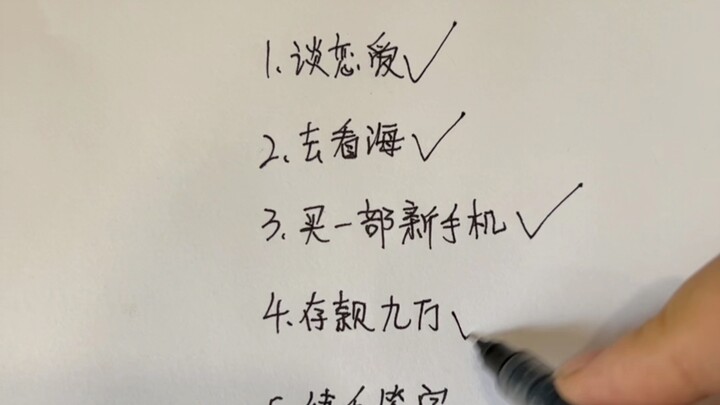 1、谈恋爱✓
2、去看海✓
3、买一部新手机✓
4、存款九万